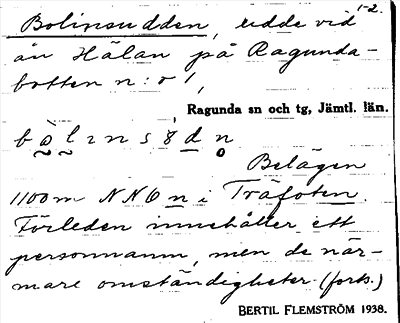 1-2.
Bolinsudden, udde vid
ån Hälan på Ragunda-
botten n:o 1,
Ragunda sn och tg, Jämtl. län.
Belägen
1100 m NNO n i Träfoten.
Förleden innehåller ett
personnamn, men de när-
mare omständigheter (forts.)
BERTIL FLEMSTRÖM 1938.